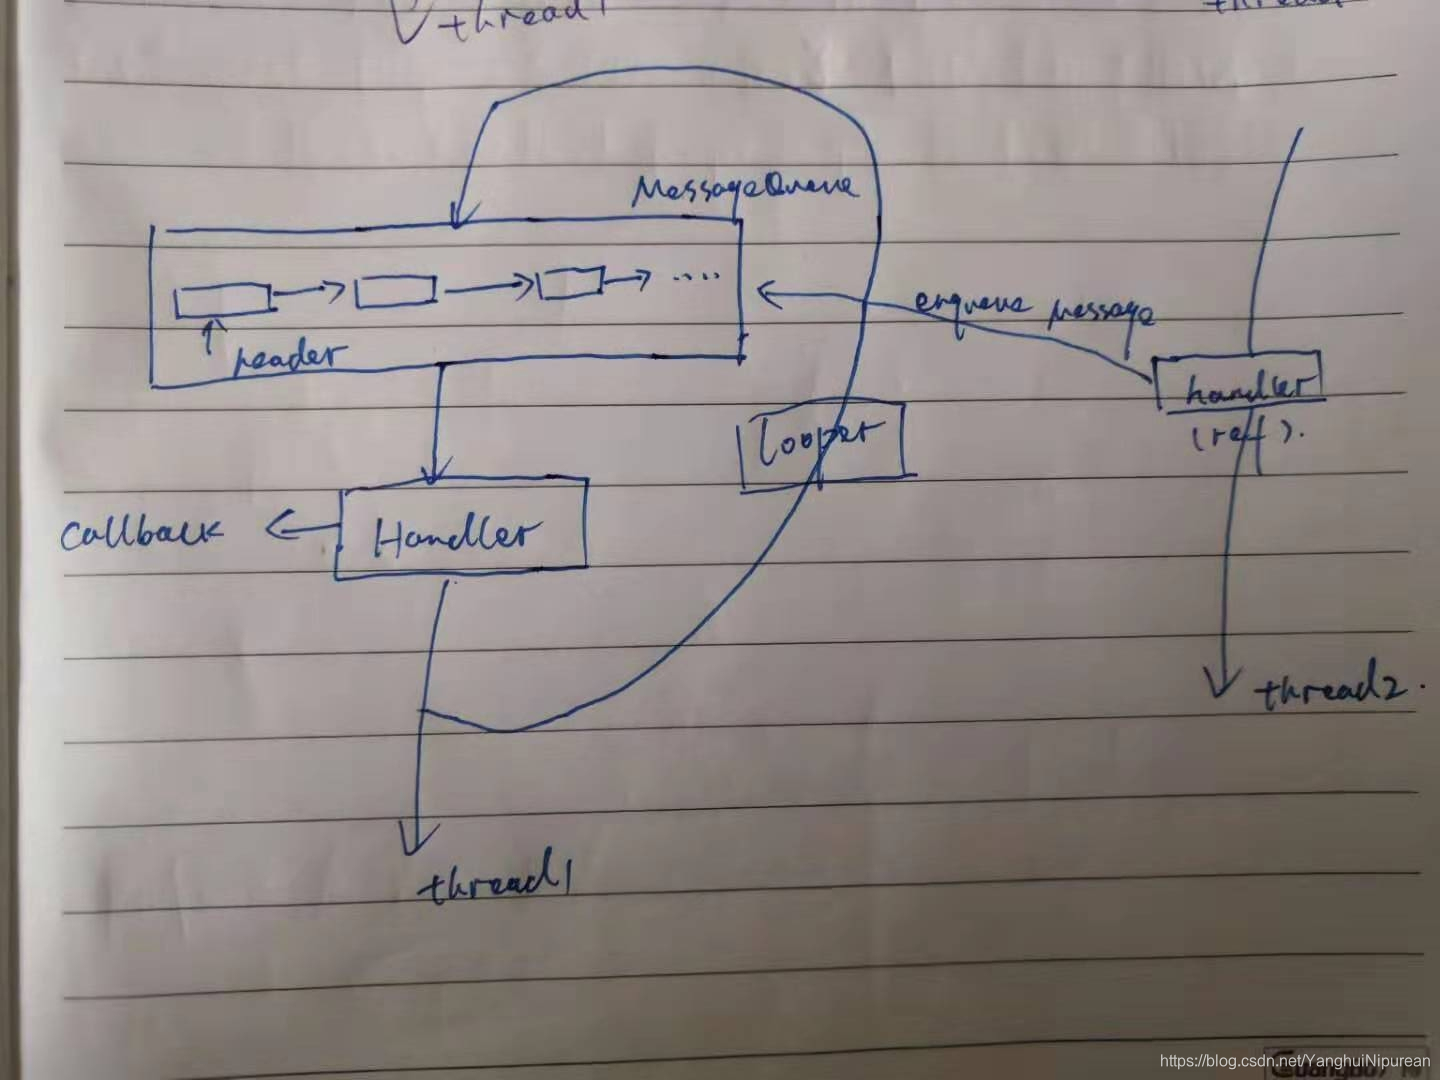 thread1
MessageQueue
enqueue message
header
handler
(ref).
looper
callback
Handler
thread2.
thread1
https://blog.csdn.net/YanghuiNipurean